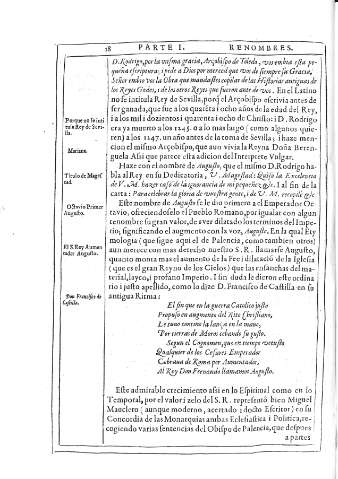 18 PARTE I. RENOMBRES.
D. Rodrigo, por la misma gracia, Arçobispo de Toledo, vos embia esta pe-
queña escriptura; i pide a Dios por merced que vos de siempre su Gracia,
Señor embio vos la Obra que mandastes copilar de las Historias antiguas de
los Reyes Godos, i de los otros Reyes que fueron ante de vos. En el Latino
no se intitula Rey de Sevilla, porq̃ el Arçobispo escrivia antes de
ser ganada, que fue a los quarẽta i ocho de la edad del Rey,
i a los mil i dozientos i quarenta i ocho de Christo: i D. Rodrigo
era ya muerto a los 1245. o a lo mas largo (como algunos quie-
ren) a los 1247. un año antes de la toma de Sevilla; i haze men-
cion el mismo Arçobispo, que aun vivia la Reyna Doña Beren-
guela. Assi que parece esta adicion del Interprete Vulgar.
Haze con el nombre de Augusto, que el mismo D. Rodrigo ha-
bla al Rey en su Dedicatoria, V. Magestad: Quiso la Excelencia
de V. M. hazer caso de la ignorancia de mi pequeñez, &c. I al fin de la
carta: Para celebrar la gloria de vuestra gente, i de V. M. &c.
Este nombre de Augusto se le dio primero a el Emperador Oc-
tavio, ofreciendoselo el Pueblo Romano, por igualar con algun
renombre su gran valor, de aver dilatado los terminos del Impe-
rio, significando el augmento con la voz, Augusto. En la qual Ety-
mologia (que sigue aqui el de Palencia, como tambien otros)
aun merece con mas derecho nuestro S. R. llamarse Augusto,
quanto monta mas el aumento de la Fee, i dilatacion de la Iglesia
(que es el gran Reyno de los Cielos) que las ensanchas del ma-
terial, layco, i profano Imperio. I sin duda le dieron este ordina
rio i justo apellido, como lo dize D. Francisco de Castilla en su
antigua Ritma:
El fin que en la guerra Catolico justo
Propuso en augmento del Rito Christiano,
Le tuvo contino la lança en la mano,
Por tierras de Moros echando su gusto.
Segun el Cognomen, que en tiempo vetusto
Qualquier de los Cesares Emperador
Cobrava de Roma por Aumentador,
Al Rey Don Fernando llamamos Augusto.
Este admirable crecimiento assi en lo Espiritual como en lo
Temporal, por el valor i zelo del S. R. representò bien Miguel
Mauclero (aunque moderno, acertado i docto Escritor) en su
Concordia de las Monarquias ambas Eclesiastica i Politica, re-
cogiendo varias sentencias del Obispo de Palencia, que despues
a partes
Porque no se in
titula Rey de Sevi-
lla.
Mariana.
Titulo de Magest
tad.
Octavio Primer
Augusto.
El S. Rey Aumen
tador Augusto.
Don Francisco de
Castilla.